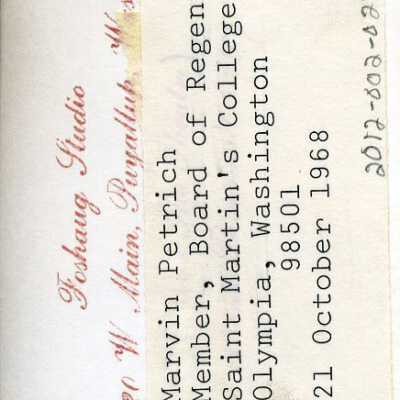 Foshaug Studio
20 W Main, Puyallup, W
Marvin Petrich
Member, Board of Regen
Saint Martin's College
Olympia, Washington
98501
21 October 1968
2012-002-02